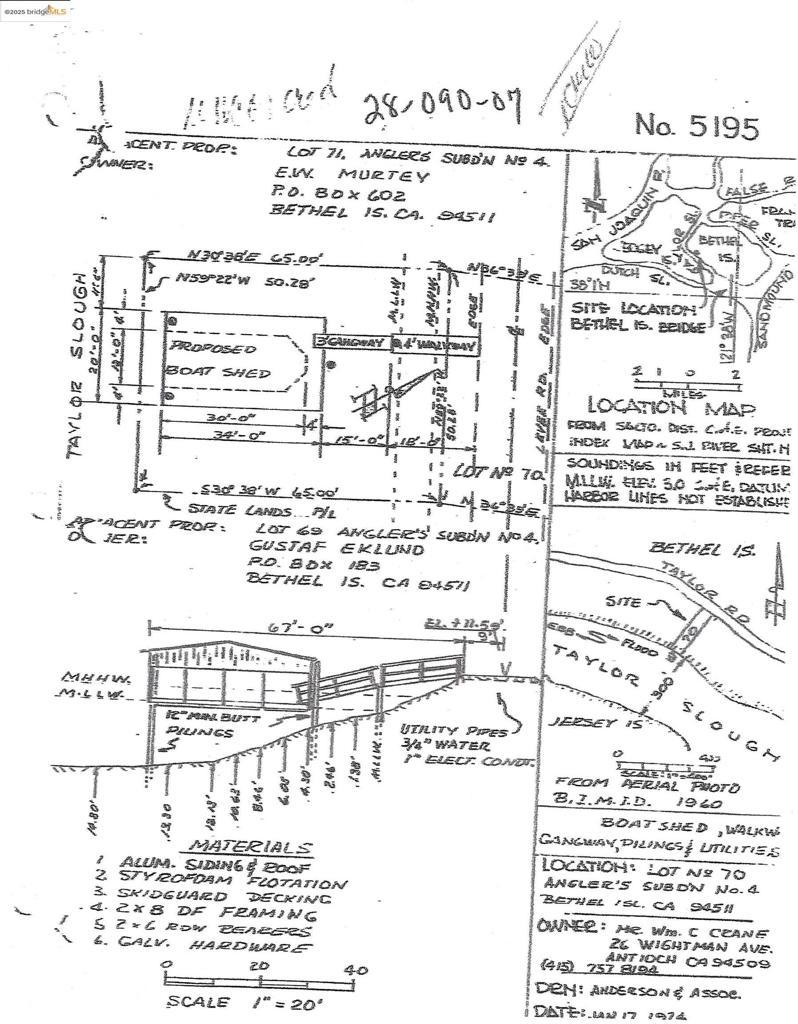 ©2025 bridgeMLS
28-090-07
No. 5195
CENT. PROP:
OWNER:
LOT 71, ANGLERS SUBD'N Nº 4.
E.W. MURTEY
P.O. BOX 602
BETHEL IS. CA. 94511
N30°38'E 65.00'
N 36°35'E
N59°22'W 50.28'
TAYLOR SLOUGH
20'-0"
12'-0"
4'
4'
PROPOSED
BOAT SHED
3' GANGWAY
4' WALKWAY
M.L.L.W.
M.H.H.W.
EDGE
LEVEE RD. EDGE
50.28'
30'-0"
4'
34'-0"
15'-0"
18'-0"
LOT Nº 70
S30°38'W 65.00'
N 36°35'E
STATE LANDS P/L
ADJACENT PROP:
LOT 69 ANGLER'S SUBD'N Nº 4,
GUSTAF EKLUND
P.O. BOX 183
BETHEL IS. CA 94511
SAN JOAQUIN R.
FALSE R
PIPER SL.
BETHEL
IS.
DUTCH SL.
38°1'N
SITE LOCATION
BETHEL IS. BRIDGE
SAND MOUND
2 1 0 2
MILES
LOCATION MAP
FROM SACTO. DIST. C. of E. PROJ.
INDEX MAP S.J. RIVER SHT. N
SOUNDINGS IN FEET & REFER
M.L.L.W. ELEV. 3.0 C of E, DATUM
HARBOR LINES NOT ESTABLISHE
BETHEL IS.
TAYLOR RD
SITE
EBB FLOOD
TAYLOR SLOUGH
300'
JERSEY IS
0 400
SCALE: 1"=400'
FROM AERIAL PHOTO
B.I.M.I.D. 1960
67'-0"
EL. +11.59'
9'
M.H.H.W.
M.L.L.W.
12" MIN. BUTT
PILINGS
UTILITY PIPES
3/4" WATER
1" ELECT. CONDT.
14.80'
13.30
12.13'
10.63'
8.46'
6.05'
4.30'
2.46'
1.38'
M.L.L.W.
MATERIALS
1 ALUM. SIDING & ROOF
2 STYROFOAM FLOTATION
3. SKIDGUARD DECKING
4. 2x8 DF FRAMING
5 2x6 RDW BEARERS
6. GALV. HARDWARE
0 20 40
SCALE 1" = 20'
BOAT SHED, WALKW
GANGWAY, PILINGS & UTILITIES
LOCATION: LOT Nº 70
ANGLER'S SUBD'N No. 4
BETHEL ISL. CA 94511
OWNER: MR. Wm. C CRANE
26 WIGHTMAN AVE.
ANTIOCH CA 94509
(415) 757 8194
DRN: ANDERSON & ASSOC.
DATE: JAN 17 1974